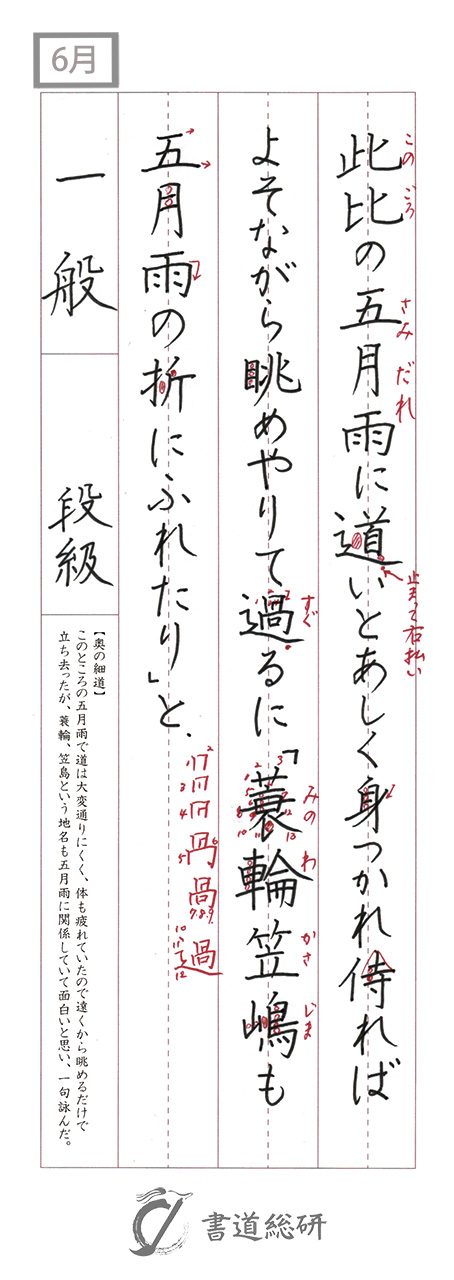 6月
此比の五月雨に道いとあしく身つかれ侍れば
このごろ
さみだれ
止まって右払い
よそながら眺めやりて過るに「蓑輪笠嶋も
すぐ
みのわ
かさじま
五月雨の折にふれたり」と、
一般
段級
【奥の細道】
このところの五月雨で道は大変通りにくく、体も疲れていたので遠くから眺めるだけで
立ち去ったが、蓑輪、笠島という地名も五月雨に関係していて面白いと思い、一句詠んだ。
書道総研